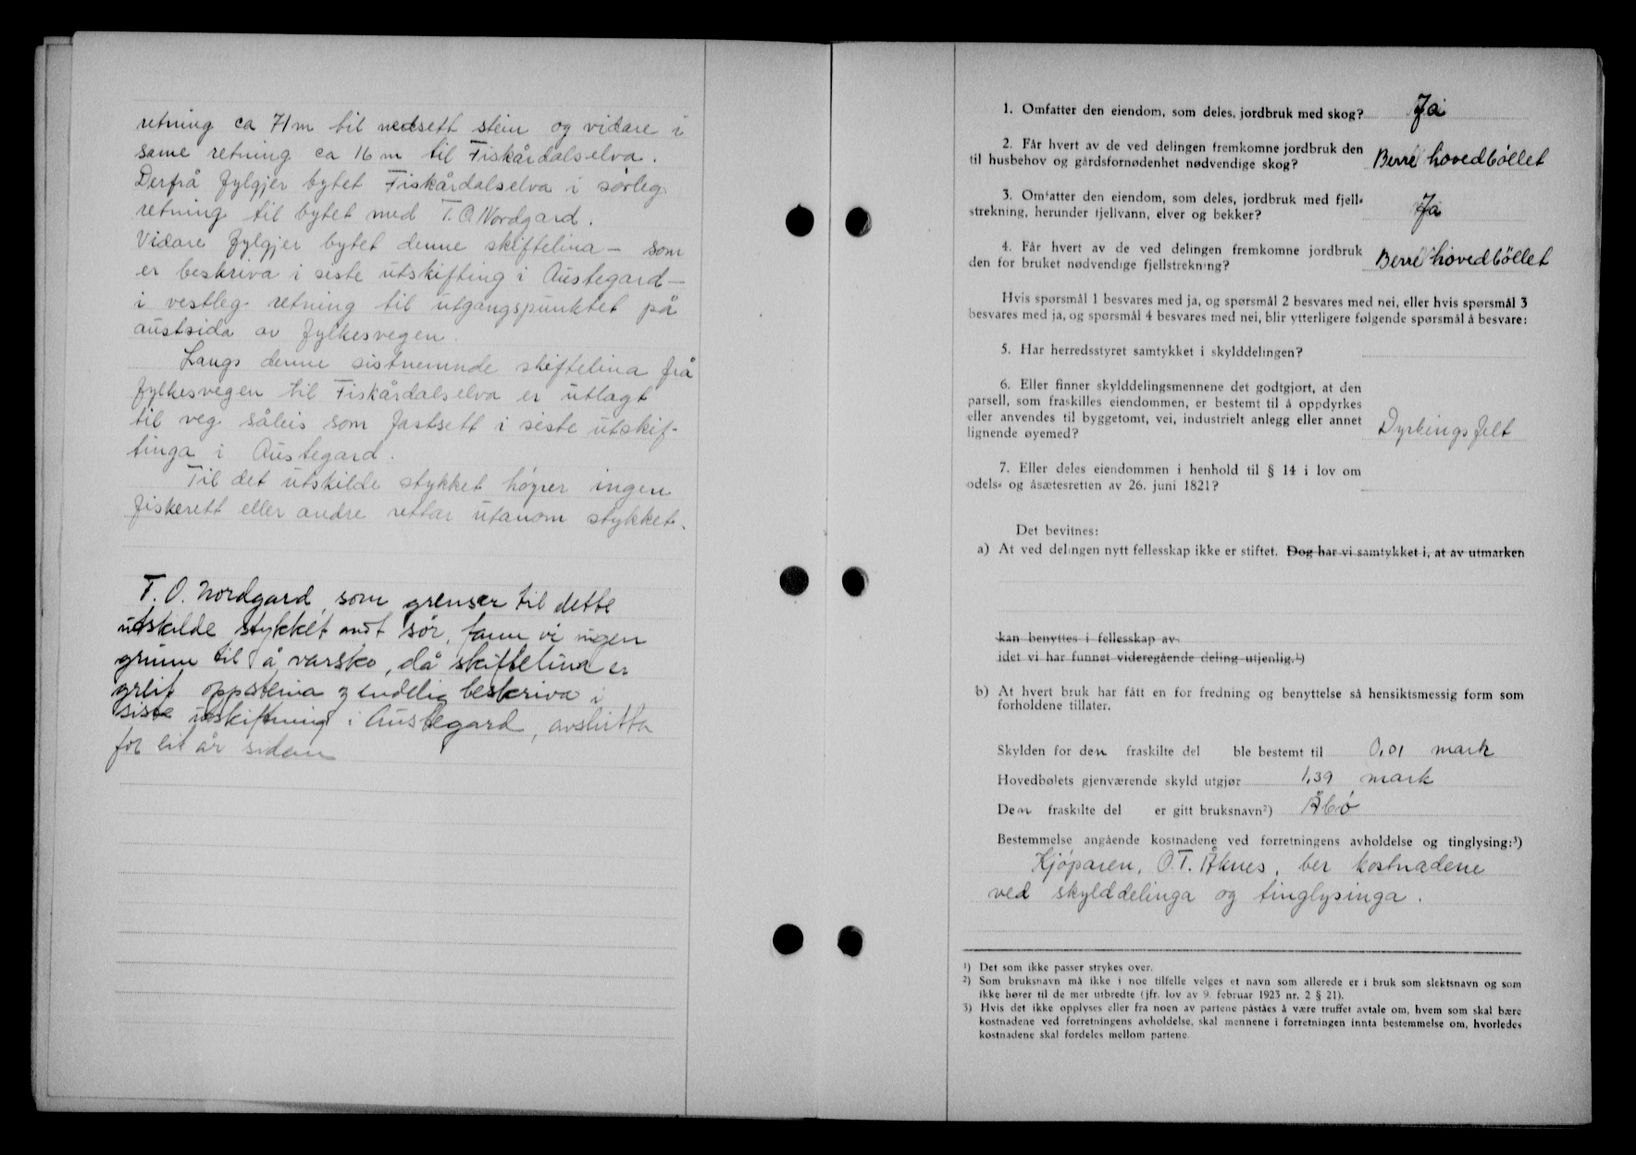 retning ca 71m til nedsett stein og vidare i
same retning ca 16 m til Fiskårdalselva.
Derfrå fylgjer bytet Fiskårdalselva i sørleg
retning til bytet med T. O. Nordgard.
Vidare fylgjer bytet denne skiftelina – som
er beskriva i siste utskifting i Austegard –
i vestleg retning til utgangspunktet på
austsida av fylkesvegen.
Langs denne sistnemnde skiftelina frå
fylkesvegen til Fiskårdalselva er utlagt
til veg såleis som fastsett i siste utskif-
tinga i Austegard.
Til det utskilde stykket høyrer ingen
fiskerett eller andre rettar utanom stykket.
T. O. Nordgard som grenser til dette
utskilde stykket mot sør, fann vi ingen
grunn til å varsko, då skiftelina er
greit oppsteina og endelig beskriva i
siste utskiftning i Austegard, avslutta
for eit år sidan
1. Omfatter den eiendom, som deles, jordbruk med skog? Ja
2. Får hvert av de ved delingen fremkomne jordbruk den
til husbehov og gårdsfornødenhet nødvendige skog? Berre hovedbøllet
3. Omfatter den eiendom, som deles, jordbruk med fjell-
strekning, herunder fjellvann, elver og bekker? Ja
4. Får hvert av de ved delingen fremkomne jordbruk
den for bruket nødvendige fjellstrekning? Berre hovedbøllet
Hvis spørsmål 1 besvares med ja, og spørsmål 2 besvares med nei, eller hvis spørsmål 3
besvares med ja, og spørsmål 4 besvares med nei, blir ytterligere følgende spørsmål å besvare:
5. Har herredsstyret samtykket i skylddelingen?
6. Eller finner skylddelingsmennene det godtgjort, at den
parsell, som fraskilles eiendommen, er bestemt til å oppdyrkes
eller anvendes til byggetomt, vei, industrielt anlegg eller annet
lignende øyemed? Dyrkingsfelt
7. Eller deles eiendommen i henhold til § 14 i lov om
odels- og åsætesretten av 26. juni 1821?
Det bevitnes:
a) At ved delingen nytt fellesskap ikke er stiftet. Dog har vi samtykket i, at av utmarken
kan benyttes i fellesskap av
idet vi har funnet videregående deling utjenlig.¹)
b) At hvert bruk har fått en for fredning og benyttelse så hensiktsmessig form som
forholdene tillater.
Skylden for den fraskilte del ble bestemt til 0,01 mark
Hovedbølets gjenværende skyld utgjør 1,39 mark
Den fraskilte del er gitt bruksnavn²) Åbø
Bestemmelse angående kostnadene ved forretningens avholdelse og tinglysing:³)
Kjøparen, O. T. Åknes, ber kostnadene
ved skylddelinga og tinglysinga.
¹) Det som ikke passer strykes over.
²) Som bruksnavn må ikke i noe tilfelle velges et navn som allerede er i bruk som slektsnavn og som
ikke hører til de mer utbredte (jfr. lov av 9. februar 1923 nr. 2 § 21).
³) Hvis det ikke opplyses eller fra noen av partene påståes å være truffet avtale om, hvem som skal bære
kostnadene ved forretningens avholdelse, skal mennene i forretningen innta bestemmelse om, hvorledes
kostnadene skal fordeles mellom partene.